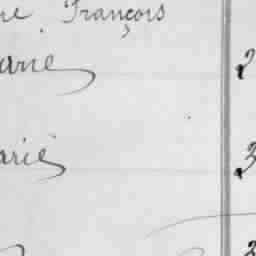 ne François
arie 2
arie 3